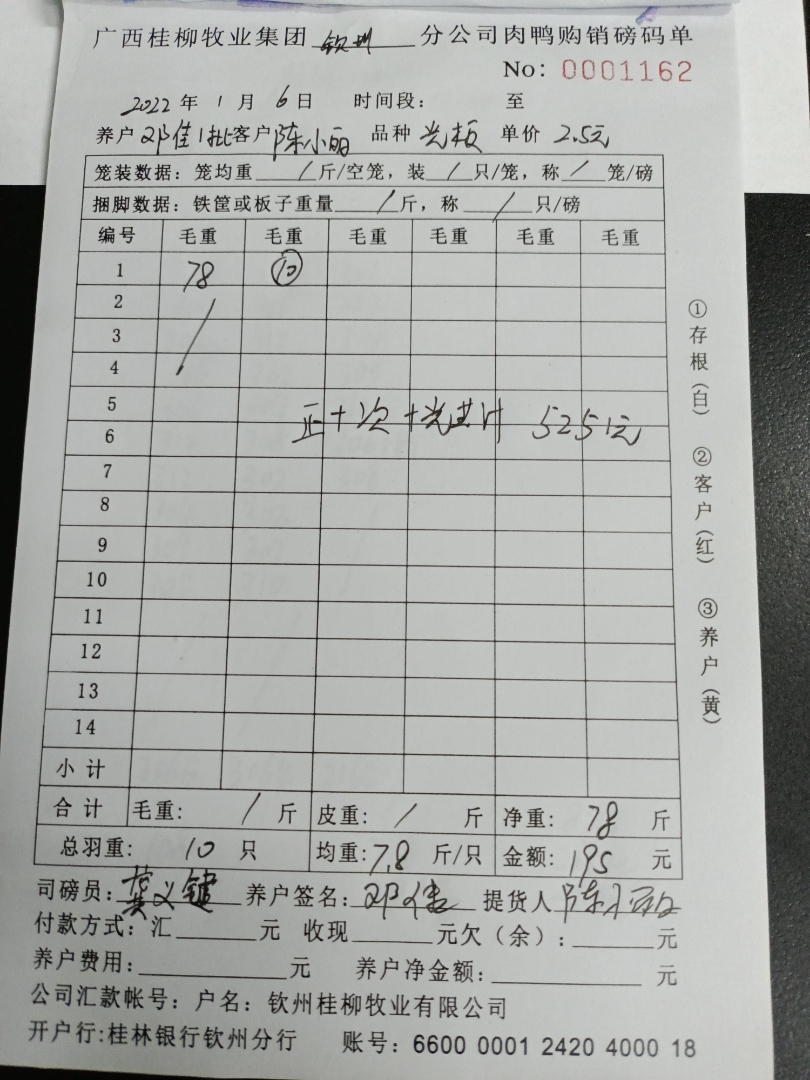 广西桂柳牧业集团 钦州 分公司肉鸭购销磅码单
No: 0001162
2022 年 1 月 6 日 时间段: 至
养户 邓佳1批 客户 陈小丽 品种 光板 单价 2.5元
笼装数据: 笼均重 / 斤/空笼, 装 / 只/笼, 称 / 笼/磅
捆脚数据: 铁筐或板子重量 / 斤, 称 / 只/磅
编号 毛重 毛重 毛重 毛重 毛重 毛重
1 78 ⑩
2 /
3
4
5
正+次+光共计 5251元
6
7
8
9
10
11
12
13
14
小计
合计 毛重: / 斤 皮重: / 斤 净重: 78 斤
总羽重: 10 只 均重: 7.8 斤/只 金额: 195 元
司磅员: 龚义键 养户签名: 邓佳 提货人 陈小丽
付款方式: 汇 元 收现 元欠(余): 元
养户费用: 元 养户净金额: 元
公司汇款帐号: 户名: 钦州桂柳牧业有限公司
开户行:桂林银行钦州分行 账号: 6600 0001 2420 4000 18
①存根(白) ②客户(红) ③养户(黄)